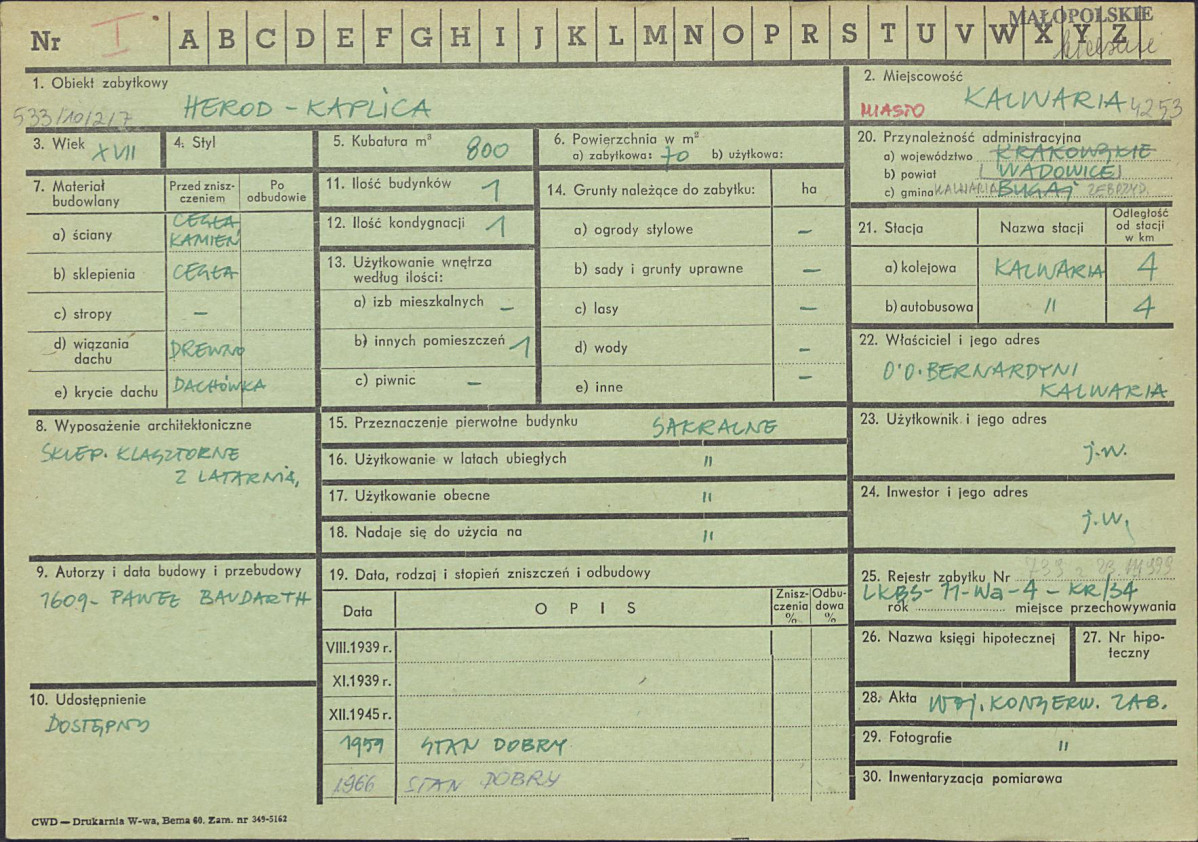 MAŁOPOLSKIE
Nr I A B C D E F G H I J K L M N O P R S T U V W X Y Z
1. Obiekt zabytkowy
533/10/2/7
HEROD - KAPLICA
2. Miejscowość
MIASTO KALWARIA 4253
3. Wiek XVII
4. Styl
5. Kubatura m³ 800
6. Powierzchnia w m²
a) zabytkowa: 70 b) użytkowa:
20. Przynależność administracyjna
a) województwo KRAKOWSKIE
b) powiat WADOWICE
c) gmina KALWARIA BUGAJ ZEBRZYD.
7. Materiał budowlany
Przed zniszczeniem
Po odbudowie
a) ściany CEGŁA KAMIEŃ
b) sklepienia CEGŁA
c) stropy –
d) wiązania dachu DREWNO
e) krycie dachu DACHÓWKA
11. Ilość budynków 1
12. Ilość kondygnacji 1
13. Użytkowanie wnętrza
według ilości:
a) izb mieszkalnych –
b) innych pomieszczeń 1
c) piwnic –
14. Grunty należące do zabytku: ha
a) ogrody stylowe –
b) sady i grunty uprawne –
c) lasy –
d) wody –
e) inne –
21. Stacja
Nazwa stacji
Odległość od stacji w km
a) kolejowa KALWARIA 4
b) autobusowa " 4
22. Właściciel i jego adres
O'O. BERNARDYNI
KALWARIA
8. Wyposażenie architektoniczne
SKLEP. KLASZTORNE
Z LATARNIĄ,
15. Przeznaczenie pierwotne budynku SAKRALNE
16. Użytkowanie w latach ubiegłych "
17. Użytkowanie obecne "
18. Nadaje się do użycia na "
23. Użytkownik i jego adres
j.w.
24. Inwestor i jego adres
j.w.
9. Autorzy i data budowy i przebudowy
1609 - PAWEŁ BAUDARTH
10. Udostępnienie
DOSTĘPNY
19. Data, rodzaj i stopień zniszczeń i odbudowy
Data
OPIS
Zniszczenia %
Odbudowa %
VIII.1939 r.
XI.1939 r.
XII.1945 r.
1959 STAN DOBRY
1966 STAN DOBRY
25. Rejestr zabytku Nr
LKBS-11-Wa-4-KR/34
rok miejsce przechowywania
26. Nazwa księgi hipotecznej
27. Nr hipoteczny
28. Akta WOJ. KONSERW. ZAB.
29. Fotografie "
30. Inwentaryzacja pomiarowa
CWD — Drukarnia W-wa, Bema 60. Zam. nr 349-5162